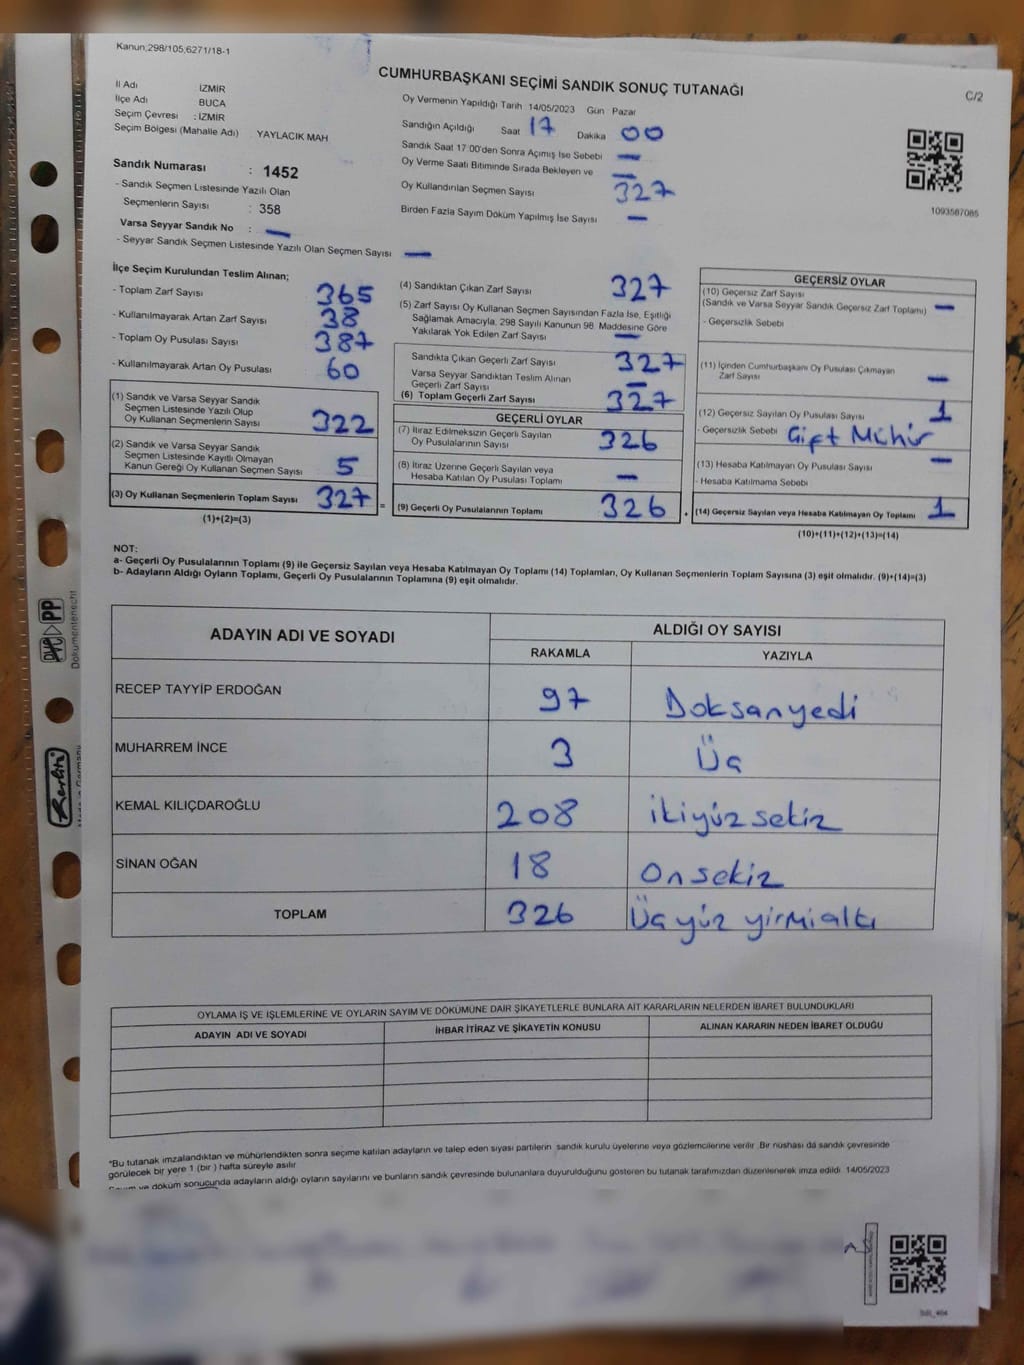 Kanun;298/105;6271/18-1
CUMHURBAŞKANI SEÇİMİ SANDIK SONUÇ TUTANAĞI
C/2
İl Adı İZMİR
İlçe Adı BUCA
Seçim Çevresi : İZMİR
Seçim Bölgesi (Mahalle Adı) YAYLACIK MAH
Oy Vermenin Yapıldığı Tarih 14/05/2023 Gün Pazar
Sandığın Açıldığı Saat 17 Dakika 00
Sandık Saat 17:00'den Sonra Açımış İse Sebebi —
Oy Verme Saati Bitiminde Sırada Bekleyen ve —
Oy Kullandırılan Seçmen Sayısı 327
Birden Fazla Sayım Döküm Yapılmış İse Sayısı —
1093587085
Sandık Numarası : 1452
- Sandık Seçmen Listesinde Yazılı Olan
Seçmenlerin Sayısı : 358
Varsa Seyyar Sandık No : —
- Seyyar Sandık Seçmen Listesinde Yazılı Olan Seçmen Sayısı —
İlçe Seçim Kurulundan Teslim Alınan;
- Toplam Zarf Sayısı 365
- Kullanılmayarak Artan Zarf Sayısı 38
- Toplam Oy Pusulası Sayısı 387
- Kullanılmayarak Artan Oy Pusulası 60
(1) Sandık ve Varsa Seyyar Sandık
Seçmen Listesinde Yazılı Olup
Oy Kullanan Seçmenlerin Sayısı 322
(2) Sandık ve Varsa Seyyar Sandık
Seçmen Listesinde Kayıtlı Olmayan
Kanun Gereği Oy Kullanan Seçmen Sayısı 5
(3) Oy Kullanan Seçmenlerin Toplam Sayısı 327 =
(1)+(2)=(3)
(4) Sandıktan Çıkan Zarf Sayısı 327
(5) Zarf Sayısı Oy Kullanan Seçmen Sayısından Fazla İse, Eşitliği
Sağlamak Amacıyla, 298 Sayılı Kanunun 98. Maddesine Göre
Yakılarak Yok Edilen Zarf Sayısı —
Sandıkta Çıkan Geçerli Zarf Sayısı 327
Varsa Seyyar Sandıktan Teslim Alınan
Geçerli Zarf Sayısı —
(6) Toplam Geçerli Zarf Sayısı 327
GEÇERLİ OYLAR
(7) İtiraz Edilmeksizin Geçerli Sayılan
Oy Pusulalarının Sayısı 326
(8) İtiraz Üzerine Geçerli Sayılan veya
Hesaba Katılan Oy Pusulası Toplamı —
(9) Geçerli Oy Pusulalarının Toplamı 326 +
GEÇERSİZ OYLAR
(10) Geçersiz Zarf Sayısı
(Sandık ve Varsa Seyyar Sandık Geçersiz Zarf Toplamı) —
- Geçersizlik Sebebi
(11) İçinden Cumhurbaşkanı Oy Pusulası Çıkmayan
Zarf Sayısı —
(12) Geçersiz Sayılan Oy Pusulası Sayısı 1
- Geçersizlik Sebebi Çift Mühür
(13) Hesaba Katılmayan Oy Pusulası Sayısı —
- Hesaba Katılmama Sebebi
(14) Geçersiz Sayılan veya Hesaba Katılmayan Oy Toplamı 1
(10)+(11)+(12)+(13)=(14)
NOT:
a- Geçerli Oy Pusulalarının Toplamı (9) ile Geçersiz Sayılan veya Hesaba Katılmayan Oy Toplamı (14) Toplamları, Oy Kullanan Seçmenlerin Toplam Sayısına (3) eşit olmalıdır. (9)+(14)=(3)
b- Adayların Aldığı Oyların Toplamı, Geçerli Oy Pusulalarının Toplamına (9) eşit olmalıdır.
ADAYIN ADI VE SOYADI ALDIĞI OY SAYISI
RAKAMLA YAZIYLA
RECEP TAYYİP ERDOĞAN 97 Doksanyedi
MUHARREM İNCE 3 Üç
KEMAL KILIÇDAROĞLU 208 ikiyüz sekiz
SİNAN OĞAN 18 Onsekiz
TOPLAM 326 Üçyüz yirmialtı
OYLAMA İŞ VE İŞLEMLERİNE VE OYLARIN SAYIM VE DÖKÜMÜNE DAİR ŞİKAYETLERLE BUNLARA AİT KARARLARIN NELERDEN İBARET BULUNDUKLARI
ADAYIN ADI VE SOYADI İHBAR İTİRAZ VE ŞİKAYETİN KONUSU ALINAN KARARIN NEDEN İBARET OLDUĞU
*Bu tutanak imzalandıktan ve mühürlendikten sonra seçime katılan adayların ve talep eden siyasi partilerin sandık kurulu üyelerine veya gözlemcilerine verilir. Bir nüshası da sandık çevresinde
görülecek bir yere 1 (bir) hafta süreyle asılır
Sayım ve döküm sonucunda adayların aldığı oyların sayılarını ve bunların sandık çevresinde bulunanlara duyurulduğunu gösteren bu tutanak tarafımızdan düzenlenerek imza edildi. 14/05/2023
PP
Dokumentenecht
Herlitz